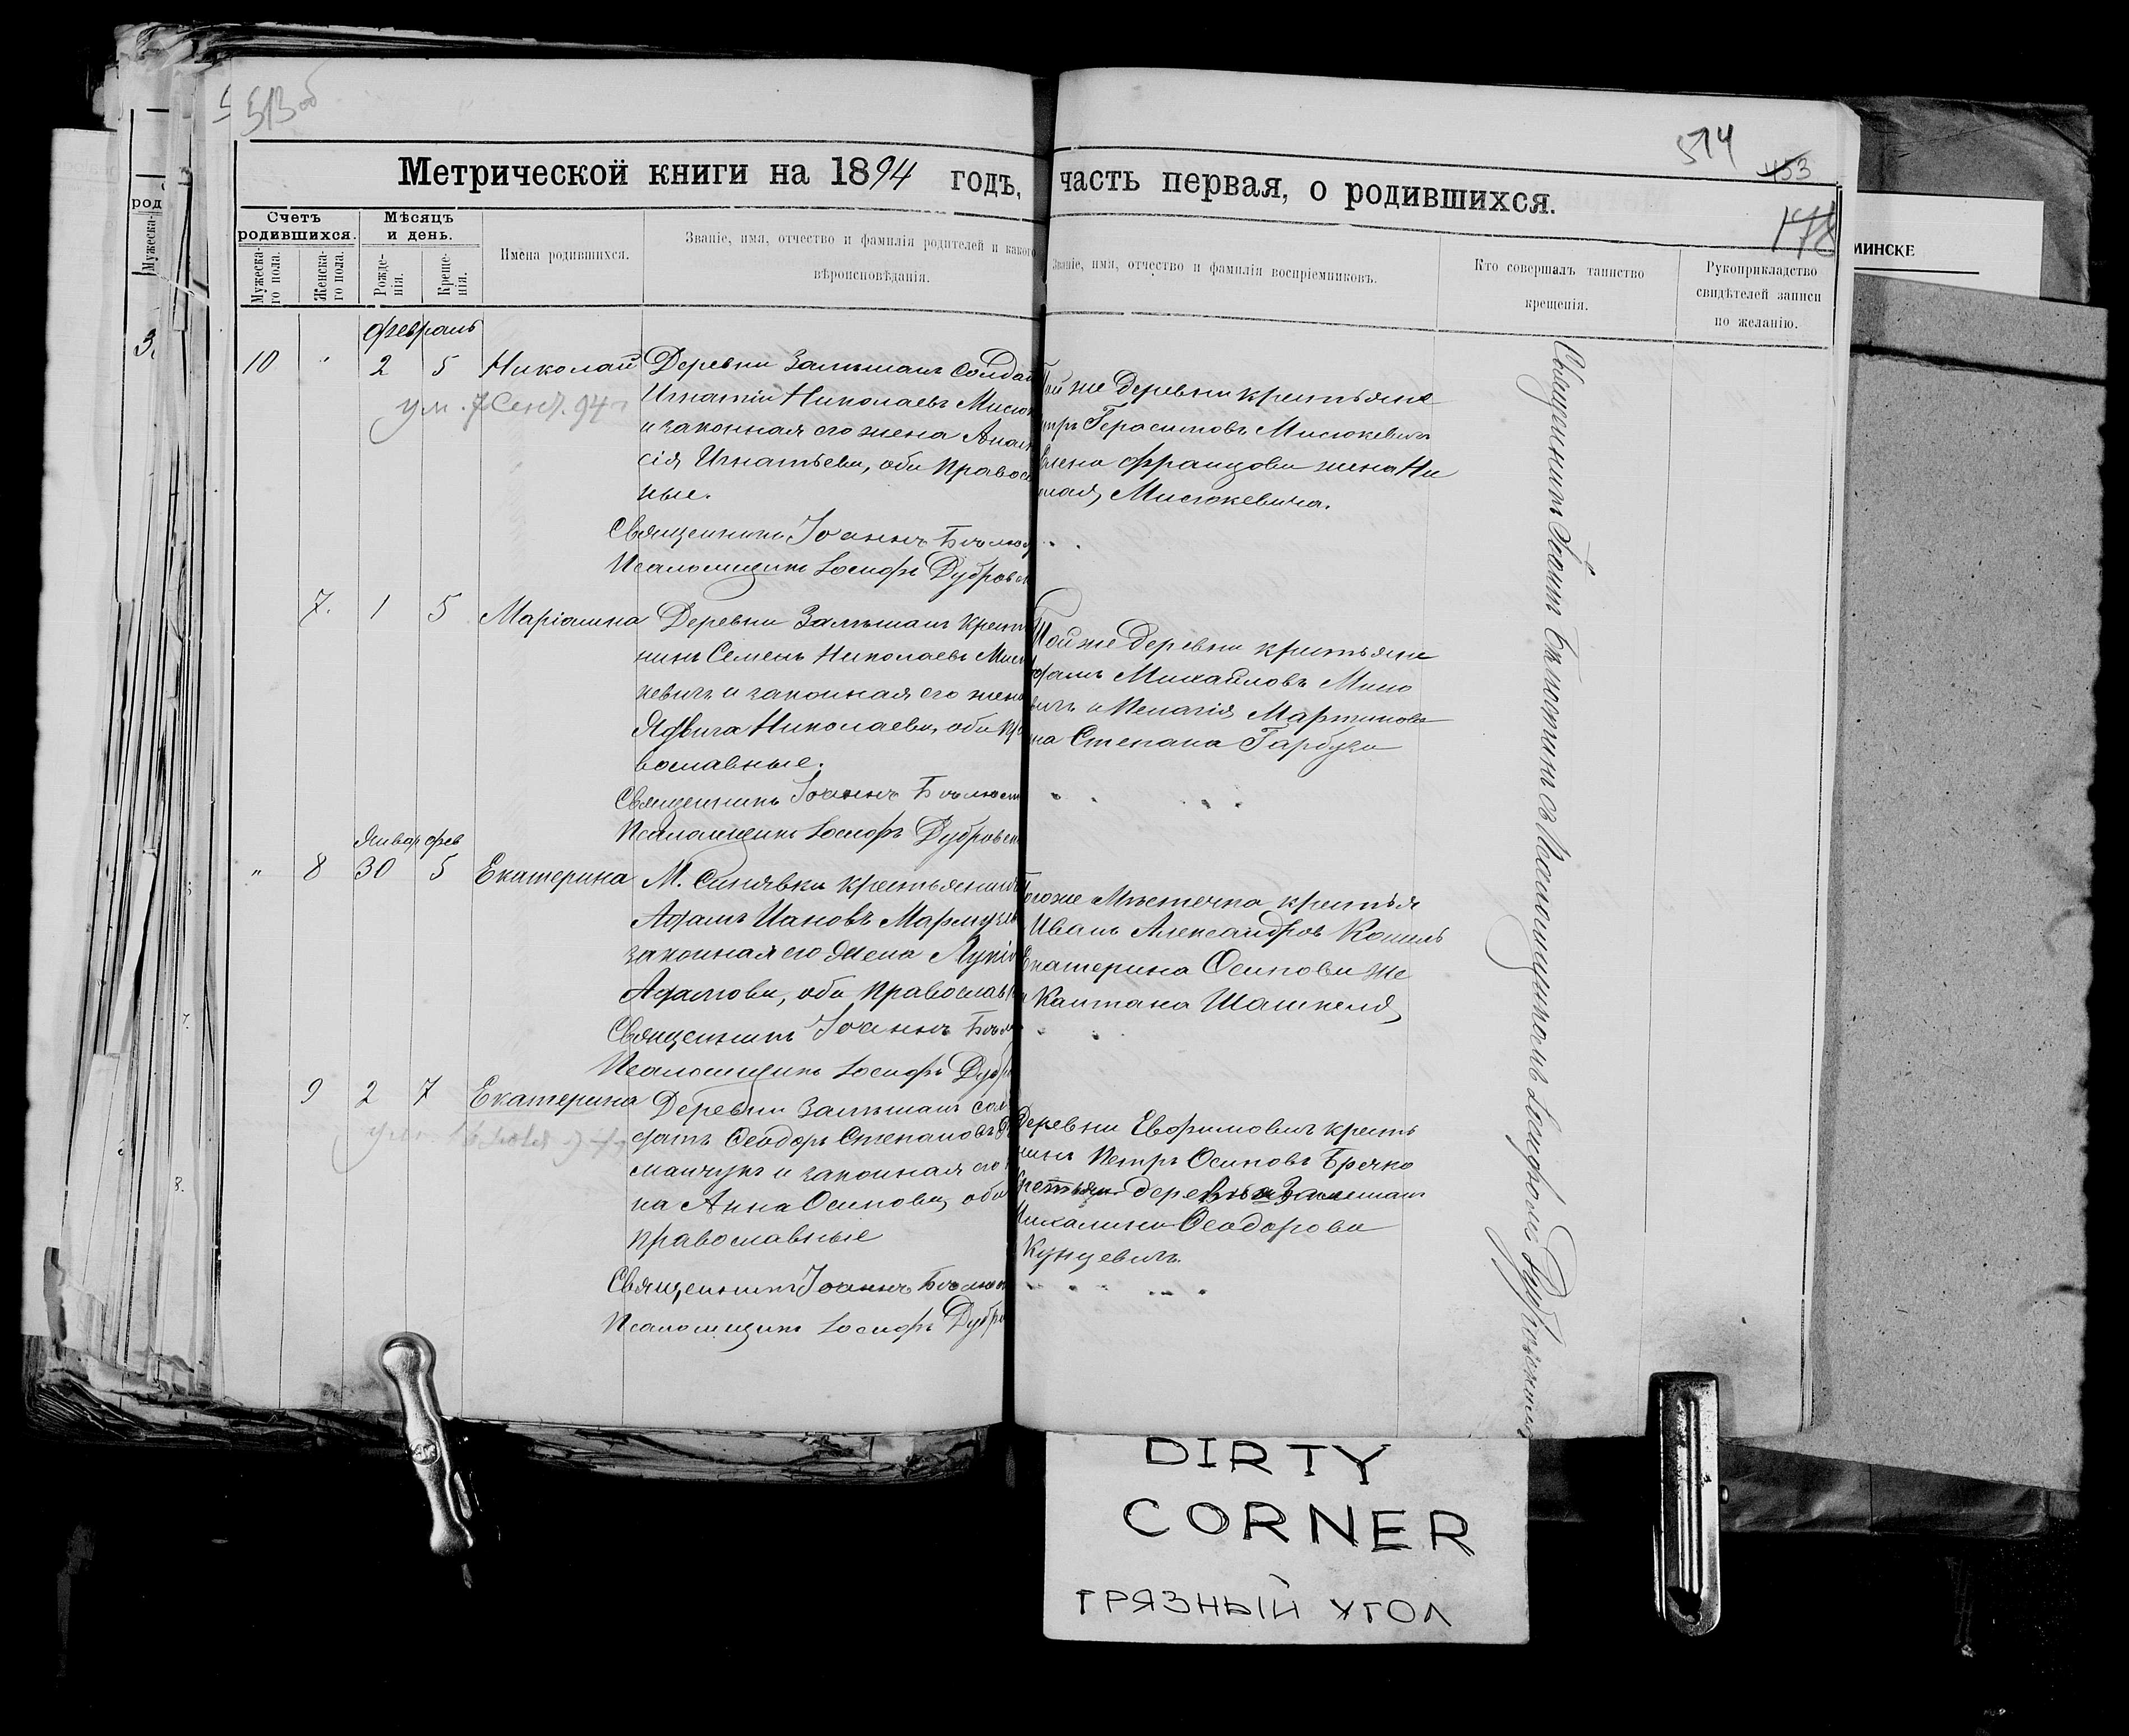 513 об
514
453
178
Метрической книги на 1894 годъ, часть первая, о родившихся.
Счетъ родившихся.
Мужеска-го пола.
Женска-го пола.
Мѣсяцъ и день.
Рожде-нія.
Креще-нія.
Имена родившихся.
Званіе, имя, отчество и фамилія родителей и какого
вѣроисповѣданія.
Званіе, имя, отчество и фамилія воспріемниковъ.
Кто совершалъ таинство
крещенія.
Рукоприкладство
свидѣтелей записи
по желанію.
февраль
10 " 2 5 Николай
ум. 7 Сент. 94
Деревни Залѣшанъ Солдат
Игнатій Николаевъ Мисю
и законная его жена Анас
сія Игнатьева, оба Правос
ные.
Священникъ Іоаннъ Бѣлю
Псаломщикъ Іосифъ Дубровс
Той же Деревни крестьяне
тръ Герасимовъ Мисюкевичъ
Елена Францова жена Ни
лая Мисюкевича.
7. 1 5 Маріанна
Деревни Залѣшанъ Крест
нинъ Семенъ Николаевъ Мисю
кевичъ и законная его жена
Ядвига Николаева, оба пр
вославные.
Священникъ Іоаннъ Бѣлюст
Псаломщикъ Іосифъ Дубровск
Той же Деревни крестьяне
Адамъ Михайловъ Мисю
вичъ и Пелагія Мартинова
на Степана Гарбуза
Январ фев
" 8 30 5 Екатерина
М. Синявки крестьянинъ
Адамъ Ивановъ Мармузе
законная его жена Лукі
Адамова, оба Православ
Священникъ Іоаннъ Бѣл
Псаломщикъ Іосифъ Дубр
того же Мѣстечка крестья
Иванъ Александров Кошель
Екатерина Осипова же
Каитана Шашкеля
9 2 7 Екатерина
Деревни Залѣшанъ сол
датъ Ѳеодоръ Степановъ
манчукъ и законная его
на Анна Осипова, оба
православные
Священникъ Іоаннъ Бѣлюст
Псаломщикъ Іосифъ Дубро
Деревни Евфимовичъ кресть
нинъ Петръ Осиповъ Брячко
деревни Залешанъ
Михалина Ѳеодорова
Кунцевичъ.
Священникъ Іоаннъ Бѣлюстинъ съ Псаломщикомъ Іосифомъ Дубровскимъ
МИНСКЕ
DIRTY
CORNER
ГРЯЗНЫЙ УГОЛ